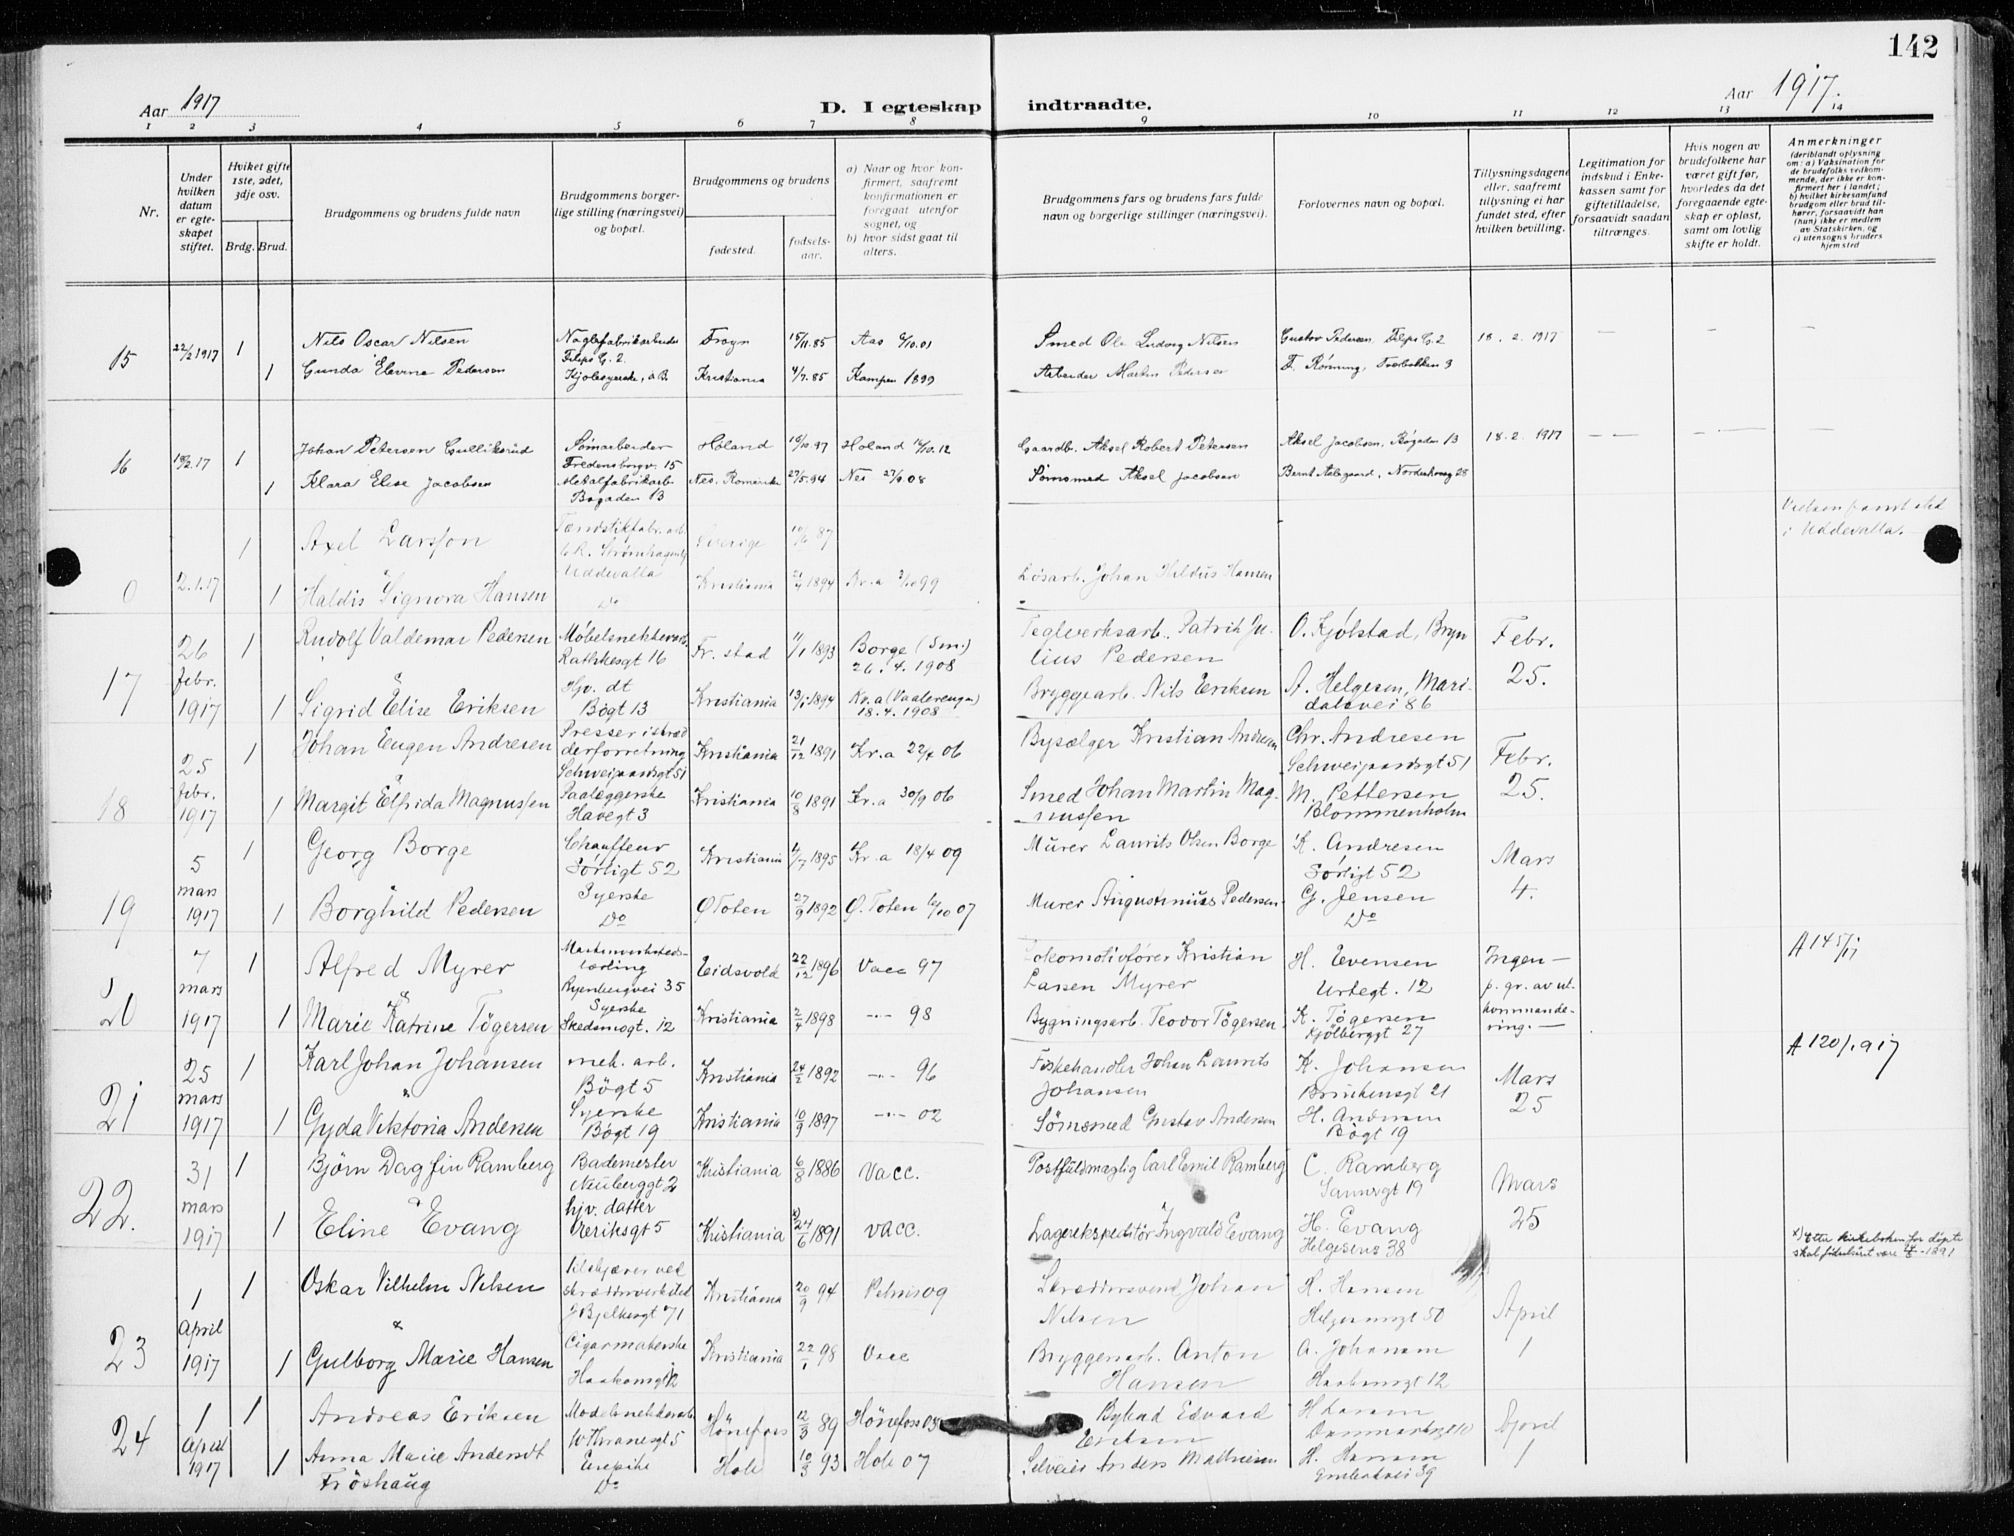 142
Aar 1917
D. I egteskap indtraadte.
Aar 1917.
1 2 3 4 5 6 7 8 9 10 11 12 13 14
Nr.
Under hvilken datum er egteskapet stiftet.
Hviket gifte 1ste, 2det, 3dje osv.
Brdg. Brud.
Brudgommens og brudens fulde navn
Brudgommens borgerlige stilling (næringsvei) og bopæl.
Brudgommens og brudens
fødested.
fødselsaar.
a) Naar og hvor konfirmert, saafremt konfirmationen er foregaat utenfor sognet, og
b) hvor sidst gaat til alters.
Brudgommens fars og brudens fars fulde navn og borgerlige stillinger (næringsvei).
Forlovernes navn og bopæl.
Tillysningsdagene eller, saafremt tillysning ei har fundet sted, efter hvilken bevilling.
Legitimation for indskud i Enkekassen samt for giftetilladelse, forsaavidt saadan tiltrænges.
Hvis nogen av brudefolkene har været gift før, hvorledes da det foregaaende egteskap er opløst, samt om lovlig skifte er holdt.
Anmerkninger
(deriblandt oplysning om: a) Vaksination for de brudefolks vedkommende, der ikke er konfirmert her i landet; b) hvilket kirkesamfund brudgom eller brud tilhører, forsaavidt han (hun) ikke er medlem av Statskirken, og c) utensogns bruders hjemsted
15 22/2 1917 1 Nils Oscar Nilsen Naglefabrikarbeider Filips G. 2 Frogn 15/11.85 Aas 6/10.01 Smed Ole Ludvig Nilsen Gustav Pedersen, Filips G. 2 18. 2. 1917 — — —
1 Gunda Elevine Pedersen Kjolesyerske, a.B. Kristiania 4/7.85 Kampen 1899 Arbeider Martin Pedersen F. Rønning, Tverbakken 3
16 18/2.17 1 Johan Petersen Gulliksrud Sømarbeider Fredensborgv. 15 Høland 10/10 97 Høland 12 Gaardbr. Aksel Robert Petersen Aksel Jacobsen, Bøgaden 13 18. 2. 1917 — — — — —
1 Klara Elise Jacobsen Metalfabrikarb. Bøgaden 13 Nes. Romerike 27/5.94 Nes 27/9 08 Sømsmed Aksel Jacobsen Bernt Aalegaard, Norderhovsg 28
0 2.1.17 1 Axel Larsson Tændstikfabr. arb. Uddevalla Sverige 87 i Uddevalla.
1 Haldis Signora Hansen Do Kristiania 1894 Kr.a 99 Løsarb. Johan Hildus Hansen
17 26 febr. 1917 1 Rudolf Valdemar Pedersen Møbelsnekkerarb. Rathkesgt 16 Fr. stad 1893 Borge (Sm.) 26. 4. 1908 Teglverksarb. Patrik Julius Pedersen O. Kjølstad, Bryn Febr. 25.
1 Sigrid Elise Eriksen Hjv. dt Bøgt 13 Kristiania 13/1 1894 Kr.a (Vaalerengen) 18. 4. 1908 Bryggearb. Nils Eriksen A. Helgesen, Maridalsvei 86
18 25 febr. 1917 1 Johan Eugen Andresen Presser i skrædderforretning Schweigaardsgt 51 Kristiania 21/12 1891 Kr.a 22/4 06 Bysælger Kristian Andresen Chr. Andresen Schweigaardsgt 51 Febr. 25.
1 Margit Elfrida Magnussen Paaleggerske Havegt 3 Kristiania 10/8 1891 Kr.a 30/9 06 Smed Johan Martin Magnussen M. Pettersen Blommenholm
19 5 mars 1917 1 Georg Borge Chauffeur Sörligt 52 Kristiania 1895 Kr.a 18/4 09 Murer Laurits Olsen Borge K. Andresen Sörligt 52 Mars 4.
1 Borghild Pedersen Syerske Do Ø Toten 27/9 1892 Ø. Toten 07 Murer Augustinius Pedersen G. Jensen Do
20 7 mars 1917 1 Alfred Myrer Maskinverkstedslærling Ryenbergvei 35 Eidsvold 22/12 1896 Vacc 97 Lokomotivfører Kristian Larsen Myrer H. Evensen Urtegt. 12 Ingen — p. gr. av utkommandering. — A 145/17
1 Marie Katrine Tögersen Syerske Skedsmogt. 12 Kristiania 2/4 1898 —"— 98 Bygningsarb. Teodor Tögersen K. Tögersen Kjölberggt 27
21 25 mars 1917 1 Karl Johan Johansen mek. arb. Bögt 5 Kristiania 24/2 1892 —"— 96 Fiskehandler Johan Laurits Johansen K. Johansen Brinkensgt 21 Mars 25 A 120/1917
1 Gyda Viktoria Andersen Syerske Bögt 19 Kristiania 10/9 1897 —"— 02 Sömsmed Gustav Andersen H. Andersen Bögt 19
22. 31 mars 1917 1 Björn Dagfin Ramberg Bademester Neuberggt 2 Kristiania 6/8 1886 Vacc. Postfuldmægtig Carl Emil Ramberg C. Ramberg Sannergt 19 Mars 25
1 Eline Evang hjv. datter Eiriksgt 5 Kristiania x) 24/6 1891 vacc. Lagerekspeditör Ingvald Evang H. Evang Helgesens 38 x) Efter kirkeboken for döpte skal födselsaaret være 1891
23 1 April 1917 1 Oskar Vilhelm Nilsen Tilskjærer ved skrædderverksted J Bjelkesgt 71 Kristiania 20/9 94 Petrus 09 Skræddersvend Johan Nilsen H. Hansen Helgesensgt 50 April 1
1 Gulborg Marie Hansen Cigarmakerske Haakonsgt 12 Kristiania 22/1 98 Vacc Bryggeriarb. Anton Hansen A. Johansen Haakonsgt 12
24 1 April 1917 1 Andreas Eriksen Modelsnekkerarb. W Thranesgt 5 Hönefoss 12/3 89 Hönefoss 03 Bybud Edvard Eriksen H Larsen Danmarksgt April 1
1 Anna Marie Andersdt Fröshaug Do Hole 10/3 93 Hole 07 Selveier Anders Mathiesen H. Hansen Enebakvei 39